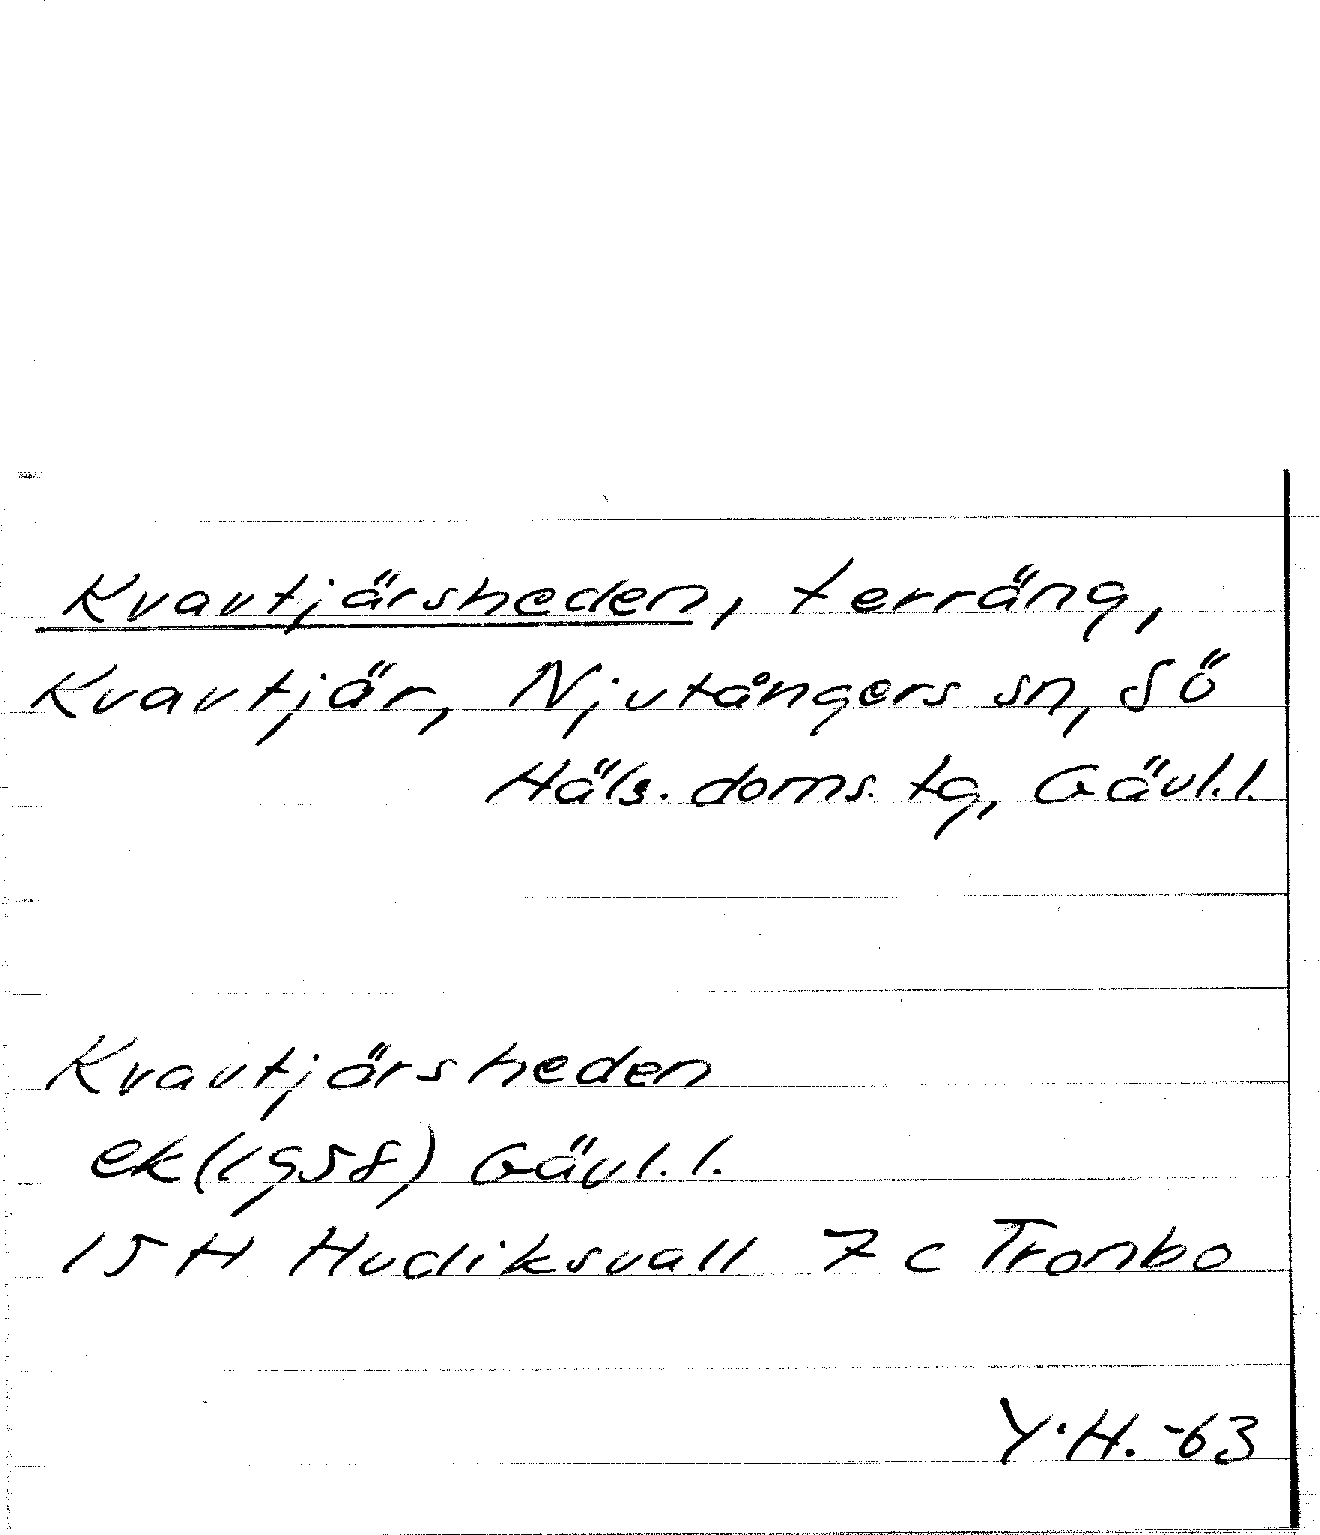 Kvavtjärsheden, terräng,
Kvavtjär, Njutångers sn, Sö
Häls. doms. tg, Gävl.l.
Kvavtjärsheden
ek(1958) Gävl.l.
15 H Hudiksvall 7 c Tronbo
Y.H. -63